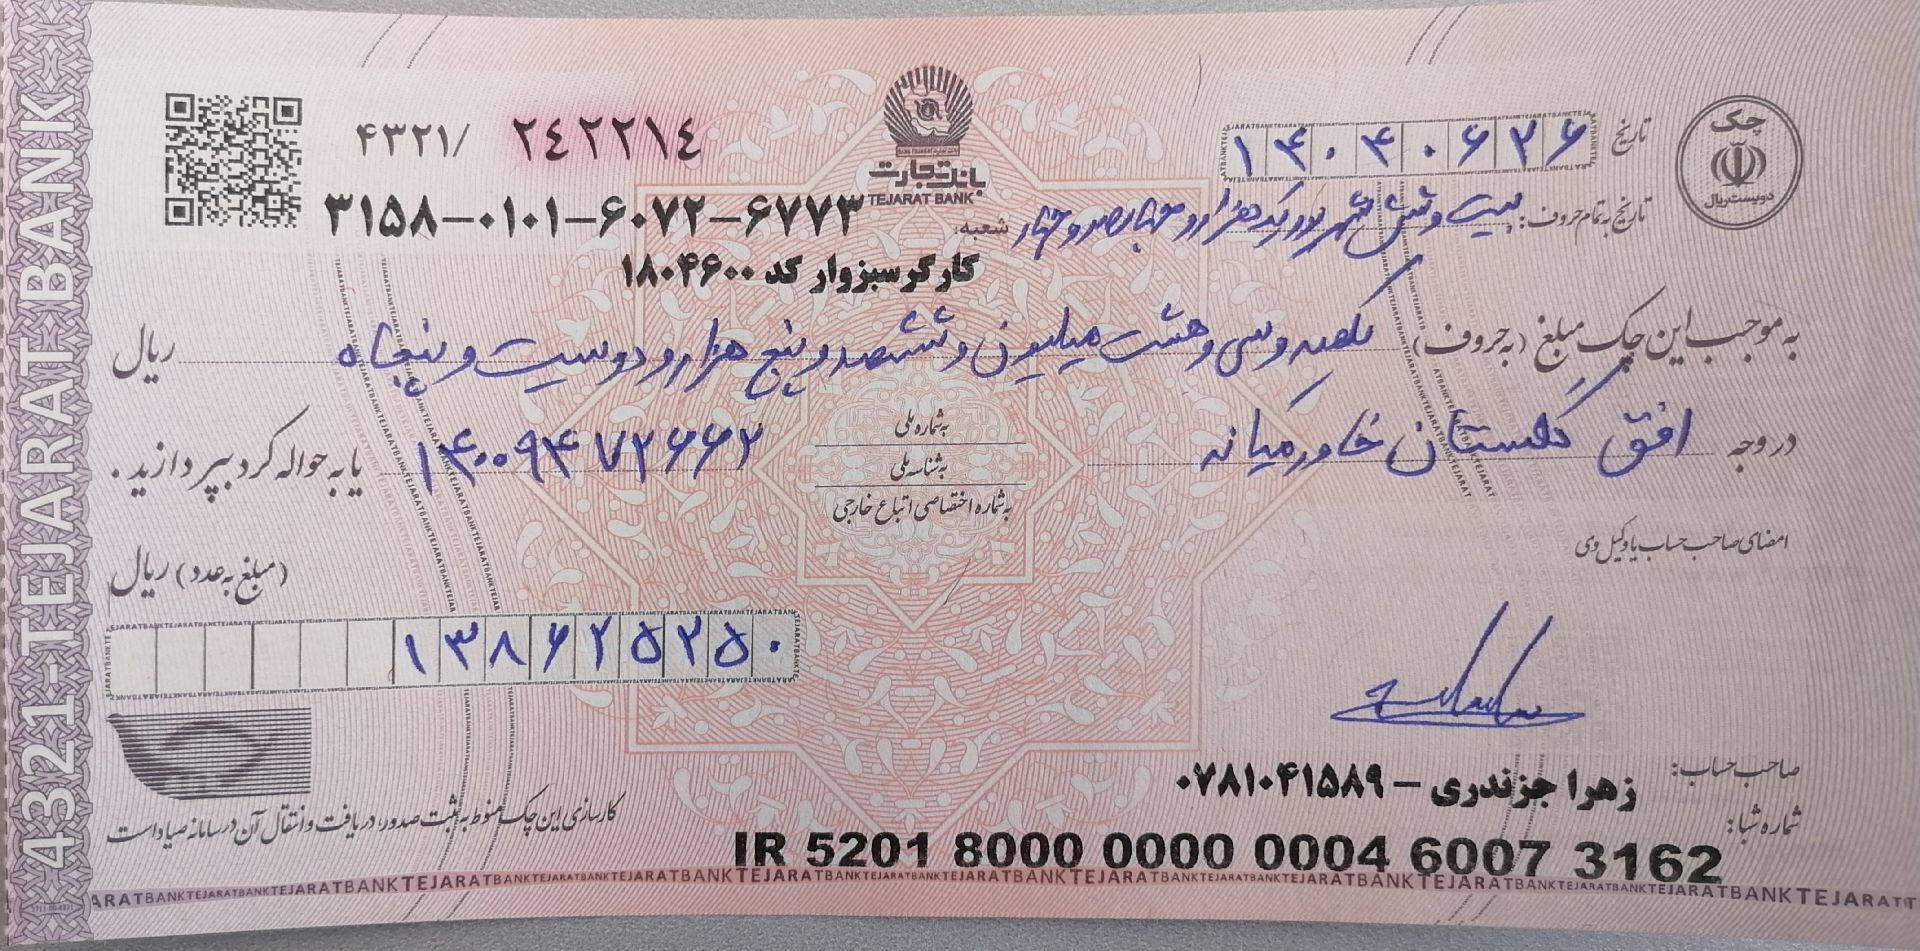 چک
دویست ریال
تاریخ ۱۴۰۴۰۶۲۶
بانک تجارت
TEJARAT BANK
۴۳۲۱/ ۲۴۲۲۱۴
تاریخ به تمام حروف: بیست و شش شهریور یکهزار و چهارصد و چهار
شعبه: ۳۱۵۸-۰۱۰۱-۶۰۷۲-۶۷۷۳
کارگر سبزوار کد ۱۸۰۴۶۰۰
به موجب این چک مبلغ (به حروف) یکصد و سی و هشت میلیون و ششصد و پنج هزار و دویست و پنجاه ریال
در وجه افق گلستان خاورمیانه
به شماره ملی
به شناسه ملی
به شماره اختصاصی اتباع خارجی
۱۴۰۰۹۴۷۲۶۶۲ یا به حواله کرد بپردازید.
امضای صاحب حساب یا وکیل وی
(مبلغ به عدد) ریال
۱۳۸۶۲۵۲۵۰
صاحب حساب: زهرا جزندری - ۰۷۸۱۰۴۱۵۸۹
شماره شبا:
IR 5201 8000 0000 0004 6007 3162
کارسازی این چک منوط به ثبت صدور، دریافت و انتقال آن در سامانه صیاد است
4321-TEJARAT BANK